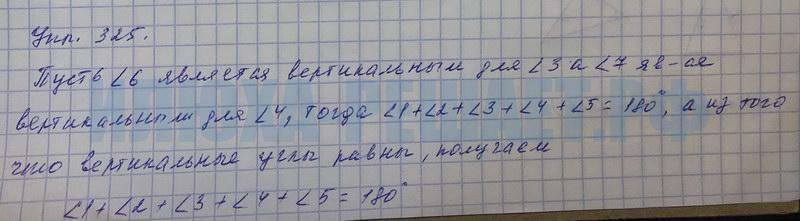 Упр. 325.
Пусть ∠6 является вертикальным для ∠3 а ∠7 яв-ся
вертикальным для ∠4, тогда ∠1+∠2+∠3+∠4+∠5=180°, а из того
что вертикальные углы равны, получаем
∠1+∠2+∠3+∠4+∠5=180°